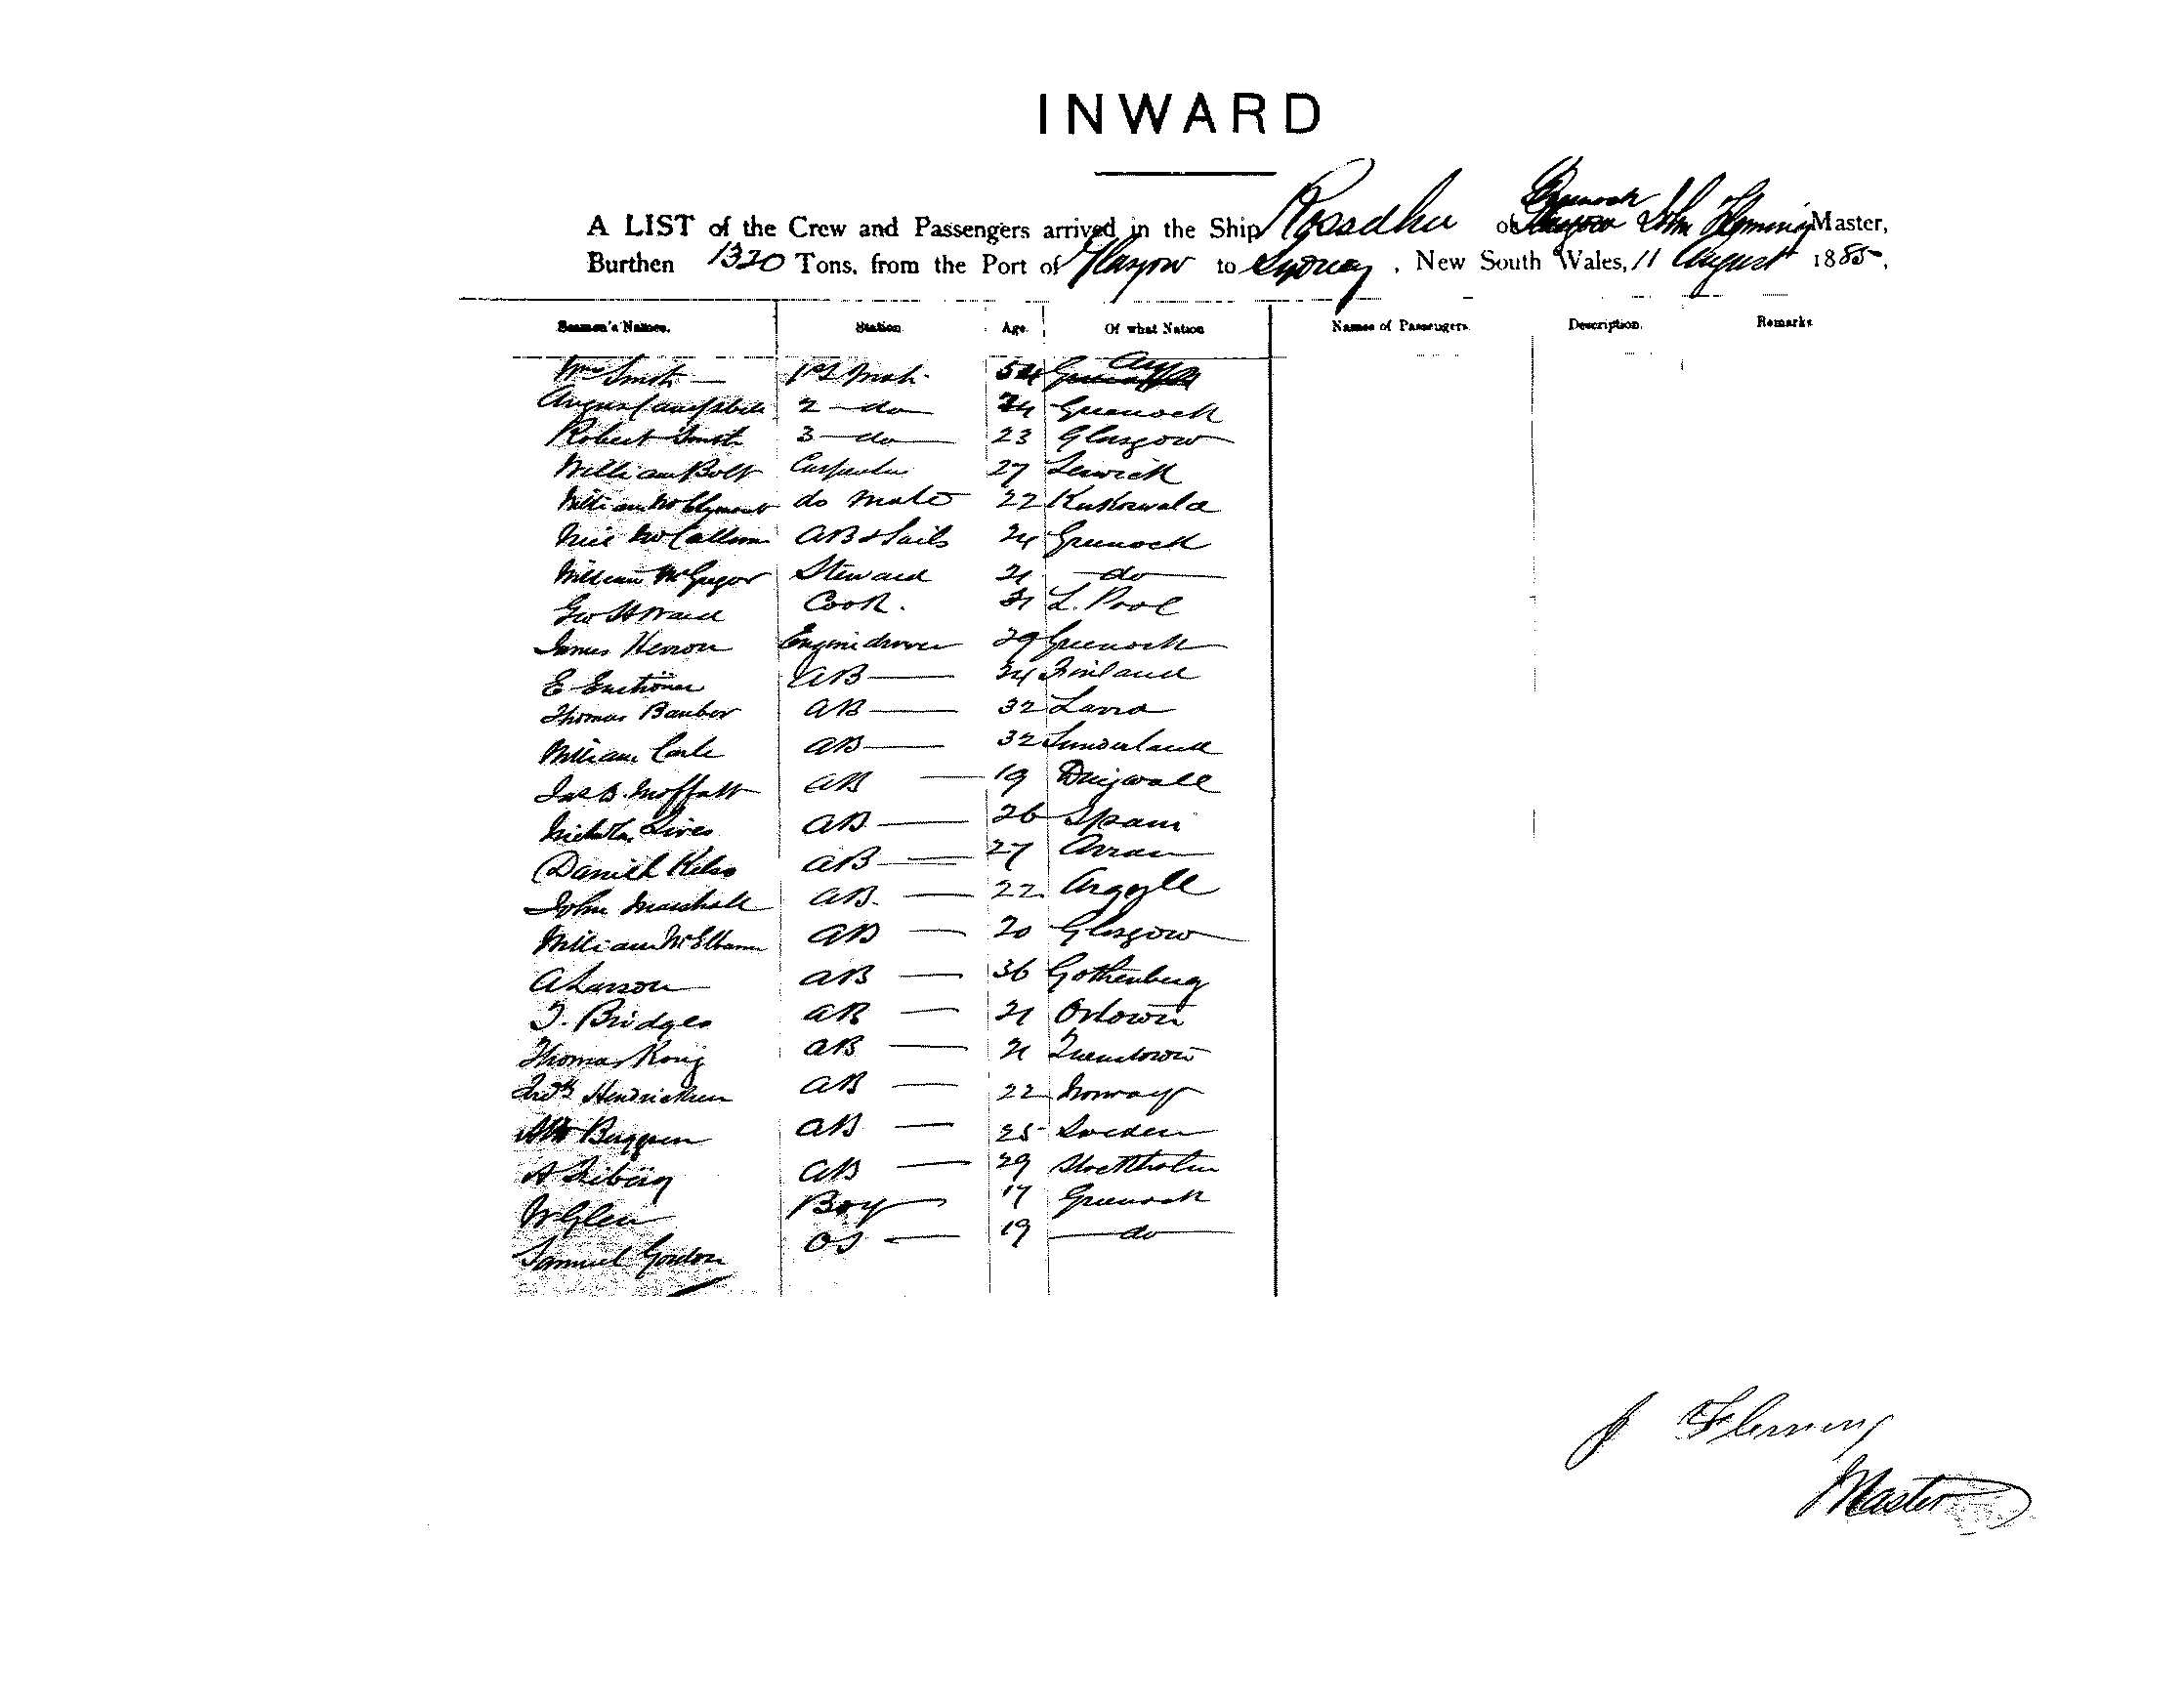 INWARD
A LIST of the Crew and Passengers arrived in the Ship Rossdhu of Greenock John Fleming Master,
Burthen 1320 Tons, from the Port of Glasgow to Sydney, New South Wales, 11 August 1885.
Seamen's Names. Station Age Of what Nation Names of Passengers Description. Remarks
Wm Smith 1st Mate 54 Ayr
Angus Campbell 2 do 34 Greenock
Robert Smith 3 do 23 Glasgow
William Bolt Carpenter 27 Lerwick
William McClymont do Mate 22 Kirkoswald
Neil McCallum AB & Sails 24 Greenock
William McGregor Steward 21 do
Geo H Ward Cook. 31 L. Pool
James Herron Enginedriver 29 Greenock
E AB 34 Finland
Thomas AB 32
William AB 32 Sunderland
Jas B. Moffatt AB 19
AB 26 Spain
Daniel Kelso AB 27 Arran
John Marshall AB. 22 Argyll
William AB 20 Glasgow
A Larson AB 36 Gothenburg
T. Bridges AB 21
Thomas AB 21 Queenstown
Hendricksen AB 22 Norway
Berggren AB 25 Sweden
A AB 29 Stockholm
W Glen Boy 17 Greenock
Samuel Gordon OS 19 do
J Fleming
Master